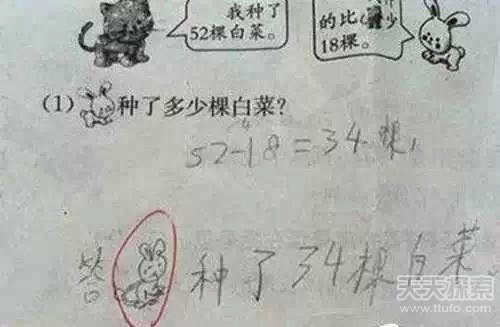 我种了
52棵白菜。
的比
少
18棵。
(1) 种了多少棵白菜?
52-18=34棵,
答 种了34棵白菜
天天探索
www.ttufo.com